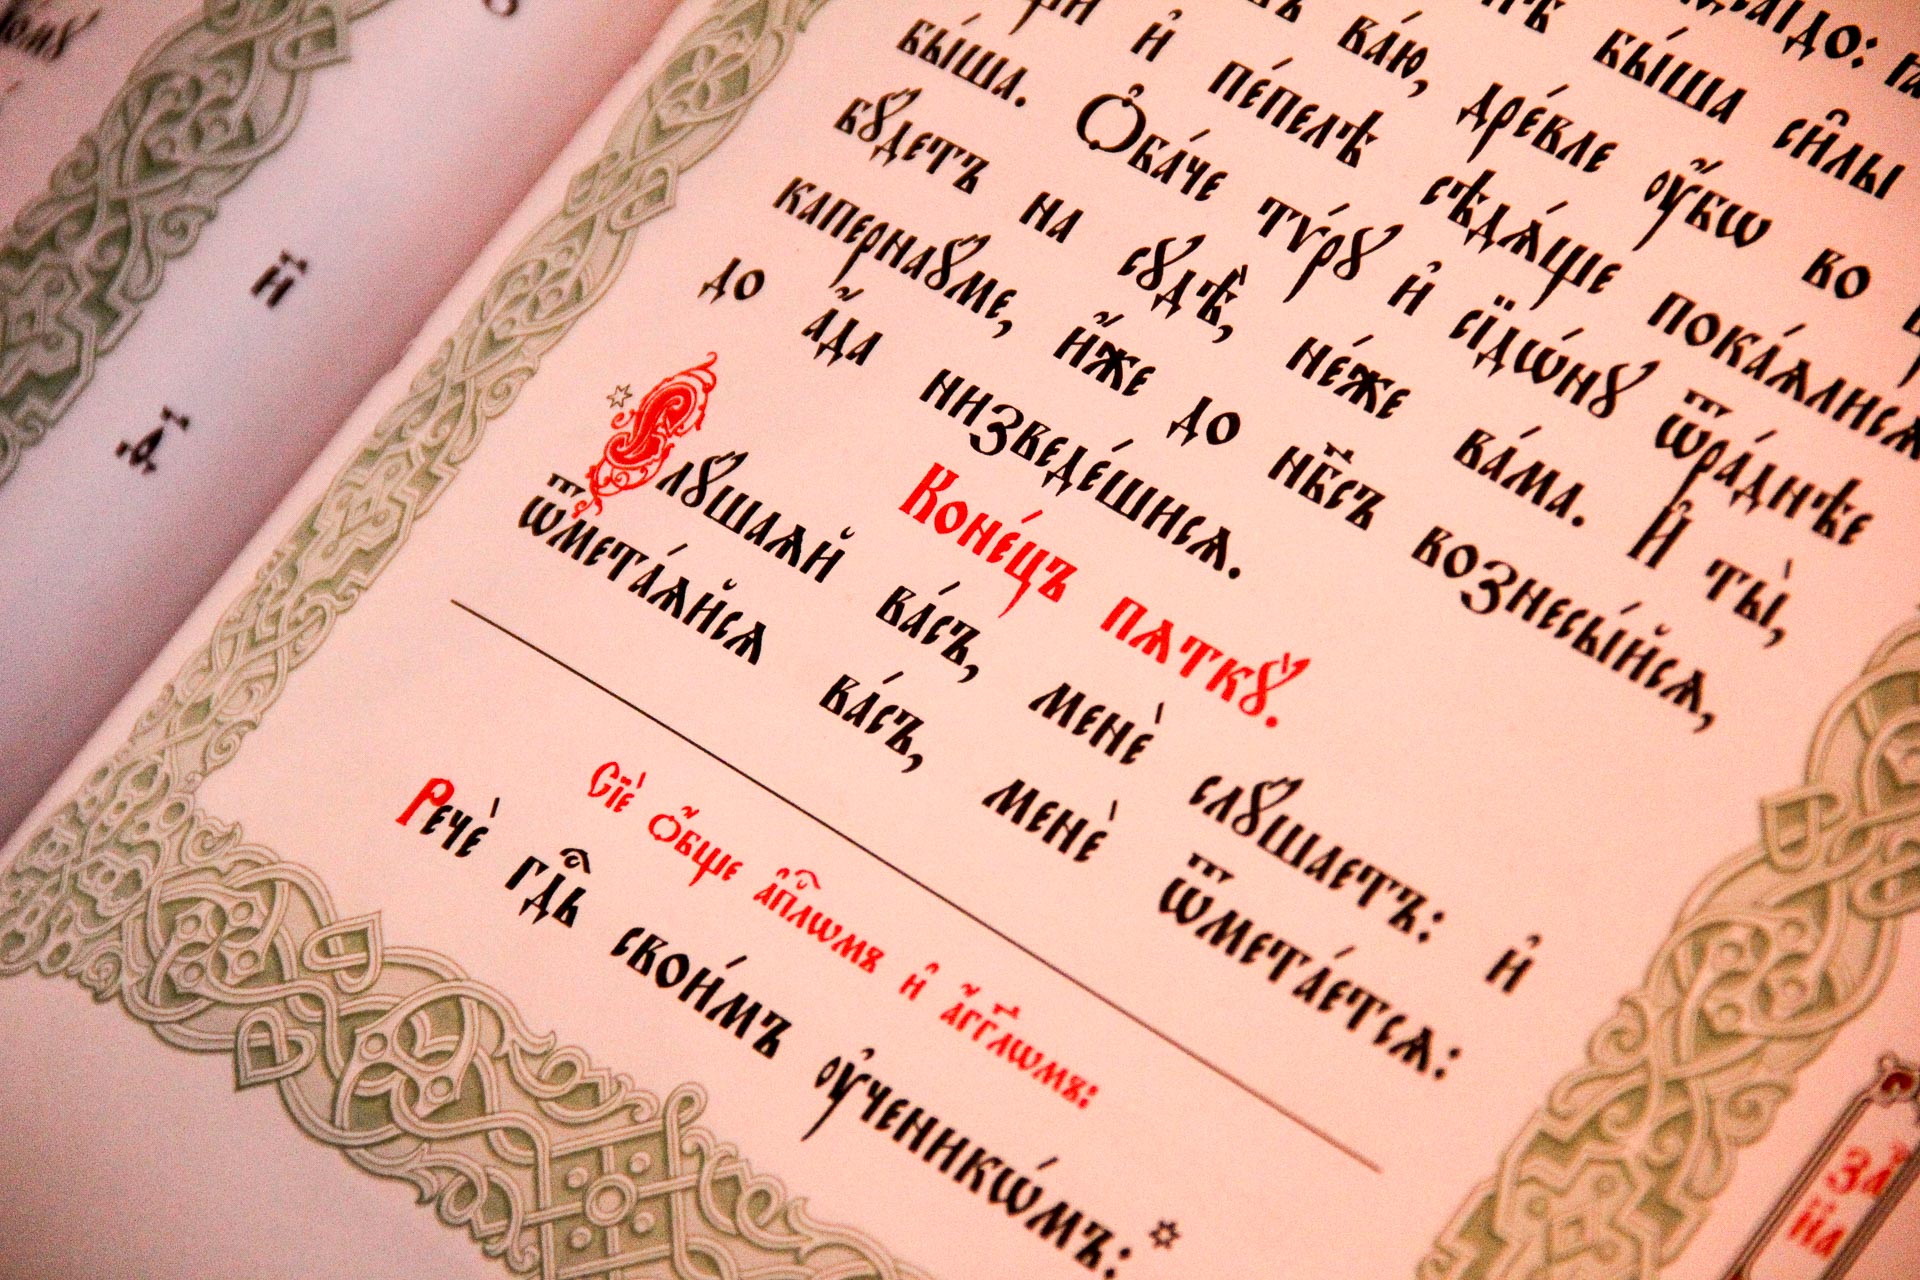 ва́ю, дре́вле ᲂу҆́бѡ во
бы́ша си̑лы
и҆ пе́пелѣ сѣдѧ́ще пока́ѧлисѧ
бы́ша. Ѻ҆ба́че тѵ́рꙋ и҆ сїдѡ́нꙋ ѿра́днѣе
бꙋ́детъ на сꙋдѣ̀, не́же ва́ма. И҆ ты̀,
капернаꙋ́ме, и҆́же до нб҃съ вознесы́йсѧ,
до а҆́да низведе́шисѧ.
Коне́цъ пѧткꙋ̀.
*Слꙋ́шаѧй ва́съ, менѐ слꙋ́шаетъ: и҆
ѿмета́ѧйсѧ ва́съ, менѐ ѿмета́етсѧ:
Сїѐ ѻ҆́бще а҆пⷭ҇лѡмъ и҆ а҆́гг҃лѡмъ:
Речѐ гдⷭ҇ь свои́мъ ᲂу҆ченикѡ́мъ:*